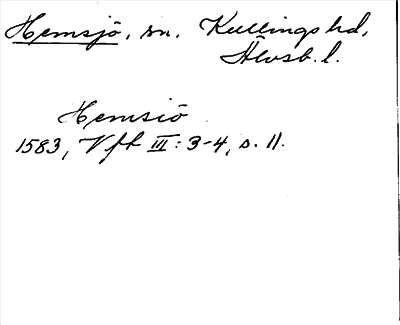 Hemsjö, sn. Kullings hd,
Älvsb. l.
Hemsiö
1583, Vfh III: 3-4, s. 11.